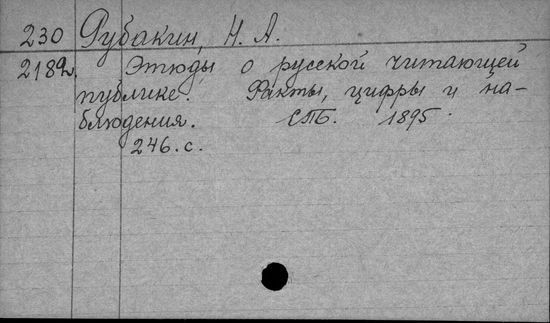 230 Рубакин, Н. А.
2189. Этюды о русской читающей
публике. Факты, цифры и на-
блюдения. СПБ. 1895.
246. с.